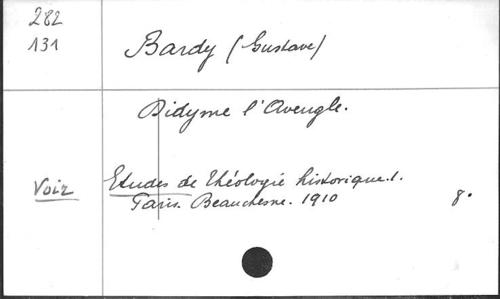 282
131
Bardy (Gustave)
Didyme l'Aveugle.
Voir
Etudes de théologie historique. 1.
Paris. Beauchesne. 1910 8°